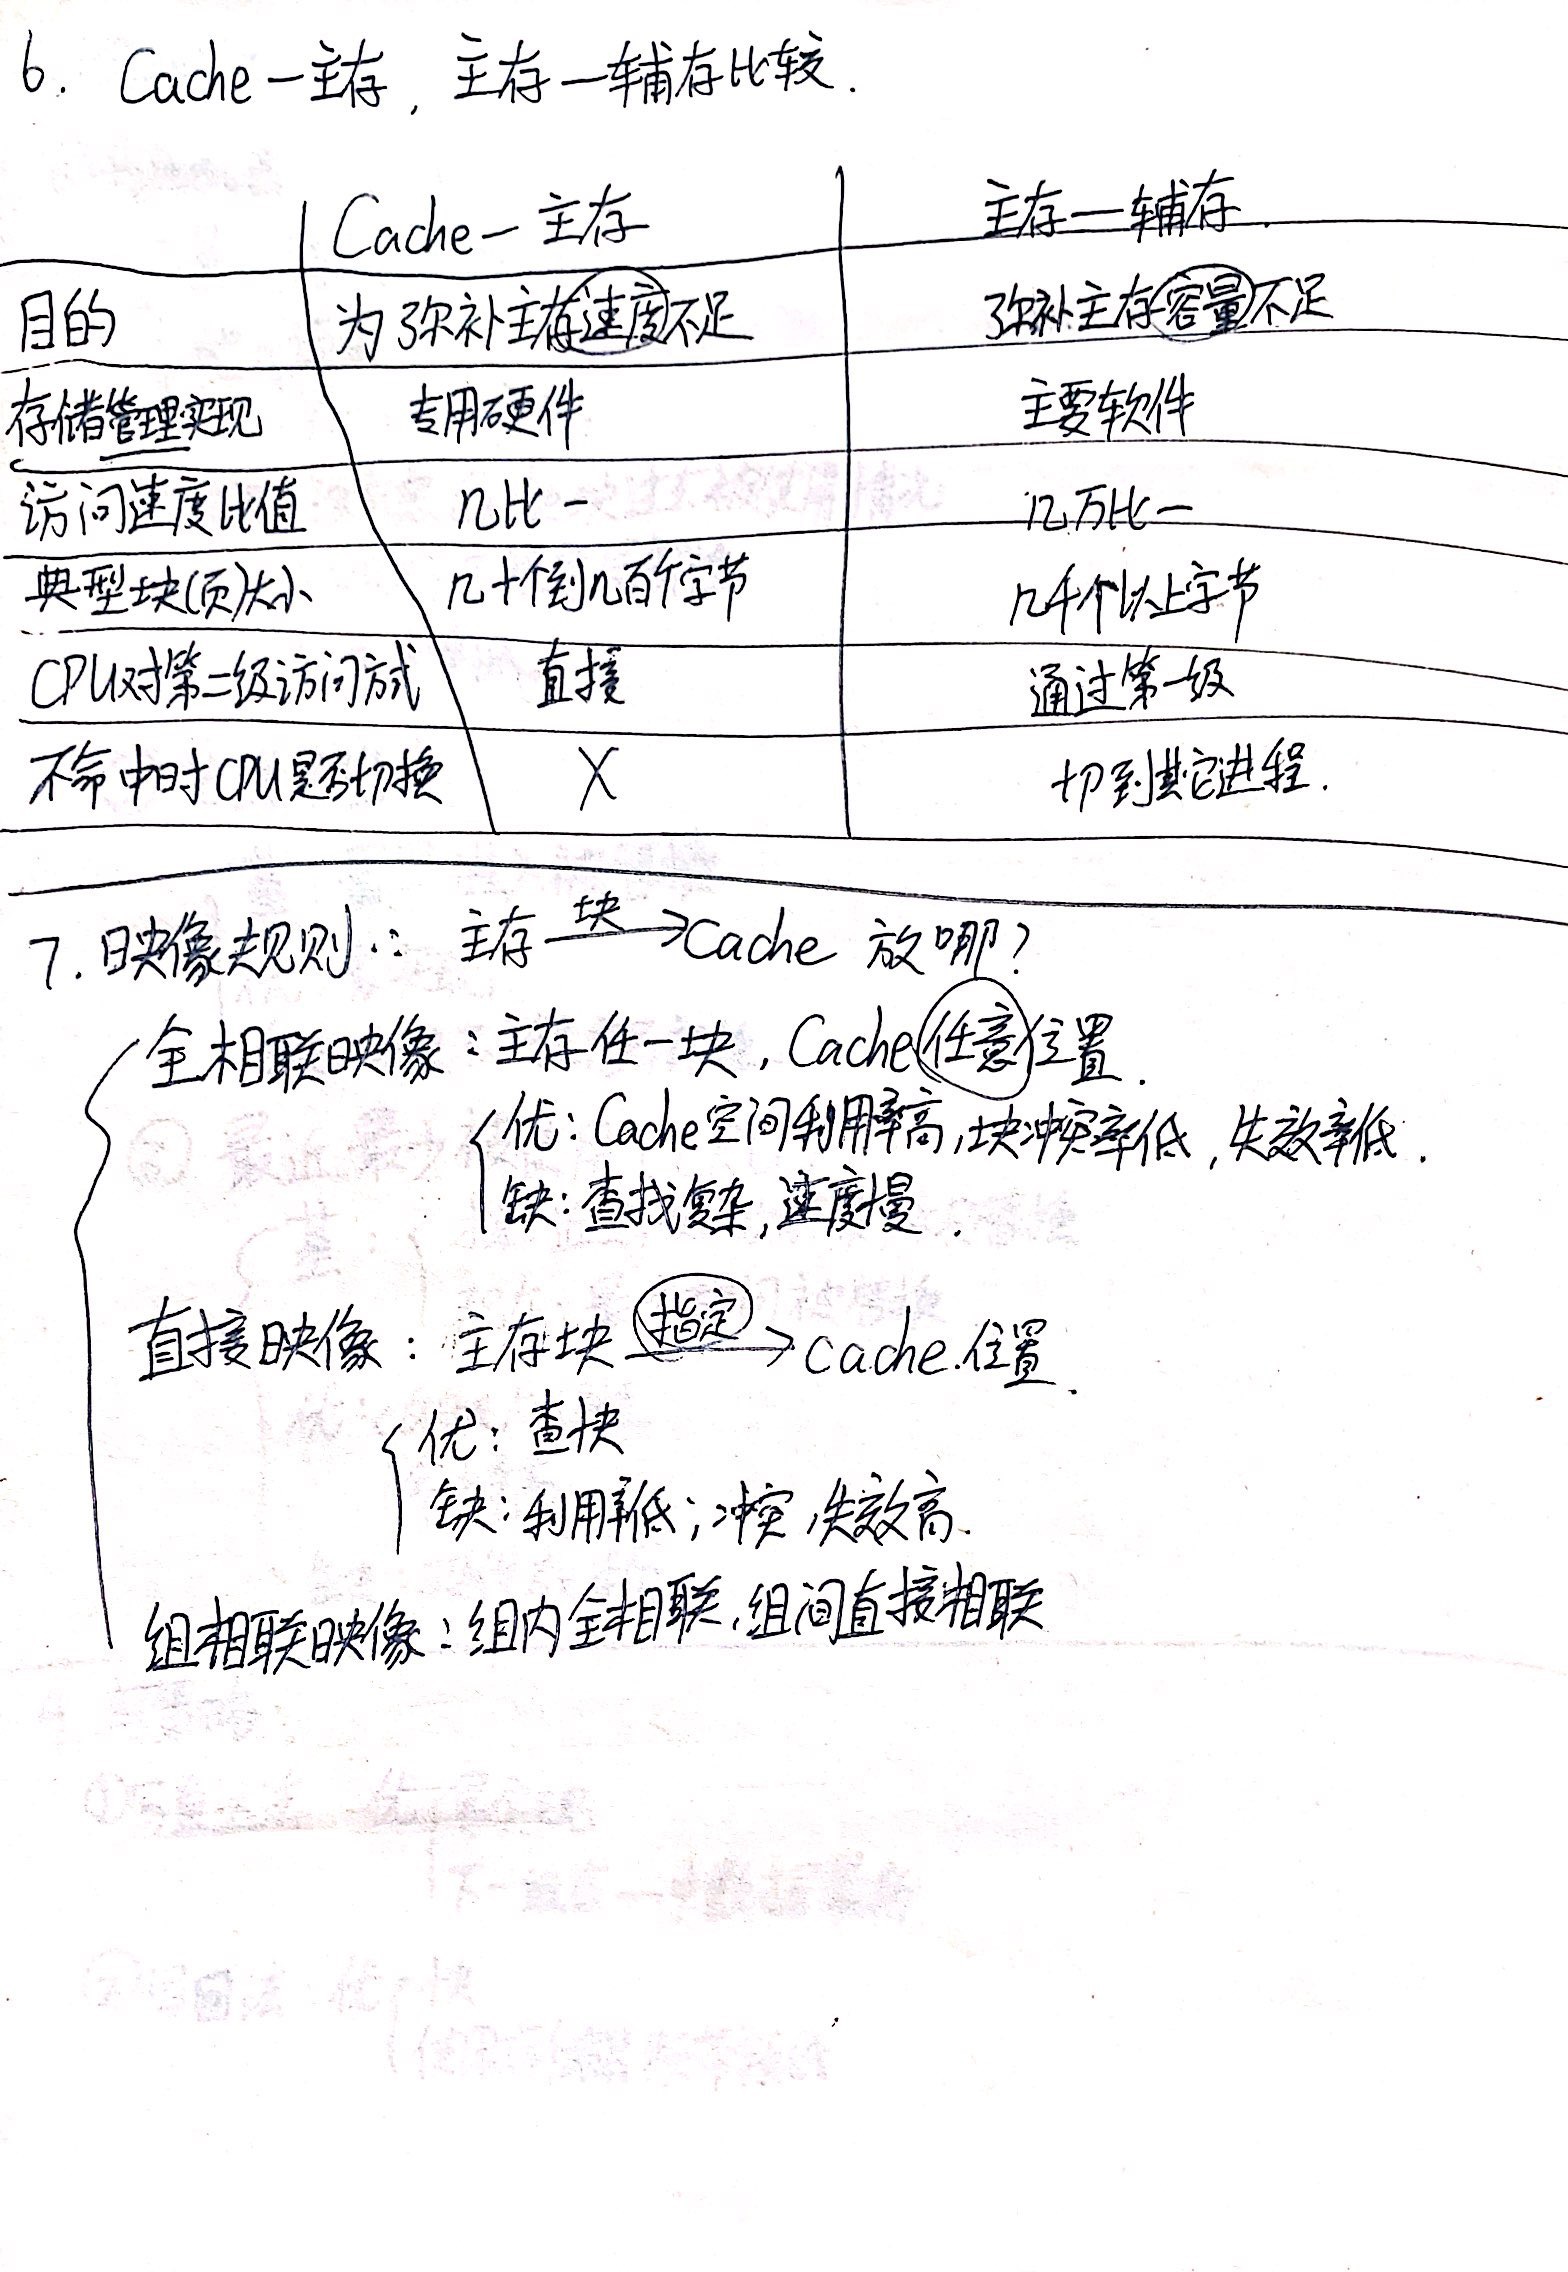 6. Cache—主存, 主存—辅存比较.
Cache—主存 主存—辅存.
目的 为弥补主存速度不足 弥补主存容量不足
存储管理实现 专用硬件 主要软件
访问速度比值 几比一 几万比一
典型块(页)大小 几十个到几百个字节 几千个以上字节
CPU对第二级访问方式 直接 通过第一级
不命中时CPU是否切换 X 切到其它进程.
7. 映像规则: 主存 块→ Cache 放哪?
全相联映像: 主存任一块, Cache任意位置.
优: Cache空间利用率高, 块冲突率低, 失效率低.
缺: 查找复杂, 速度慢.
直接映像: 主存块 指定→ cache.位置.
优: 查快
缺: 利用率低; 冲突, 失效高.
组相联映像: 组内全相联, 组间直接相联